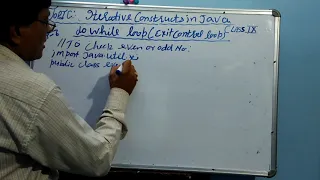 Topic: Iterative Constructs in Java
do while loop (exit control loop) class IX
// To check even or odd No:
import java.util.*;
public class eve